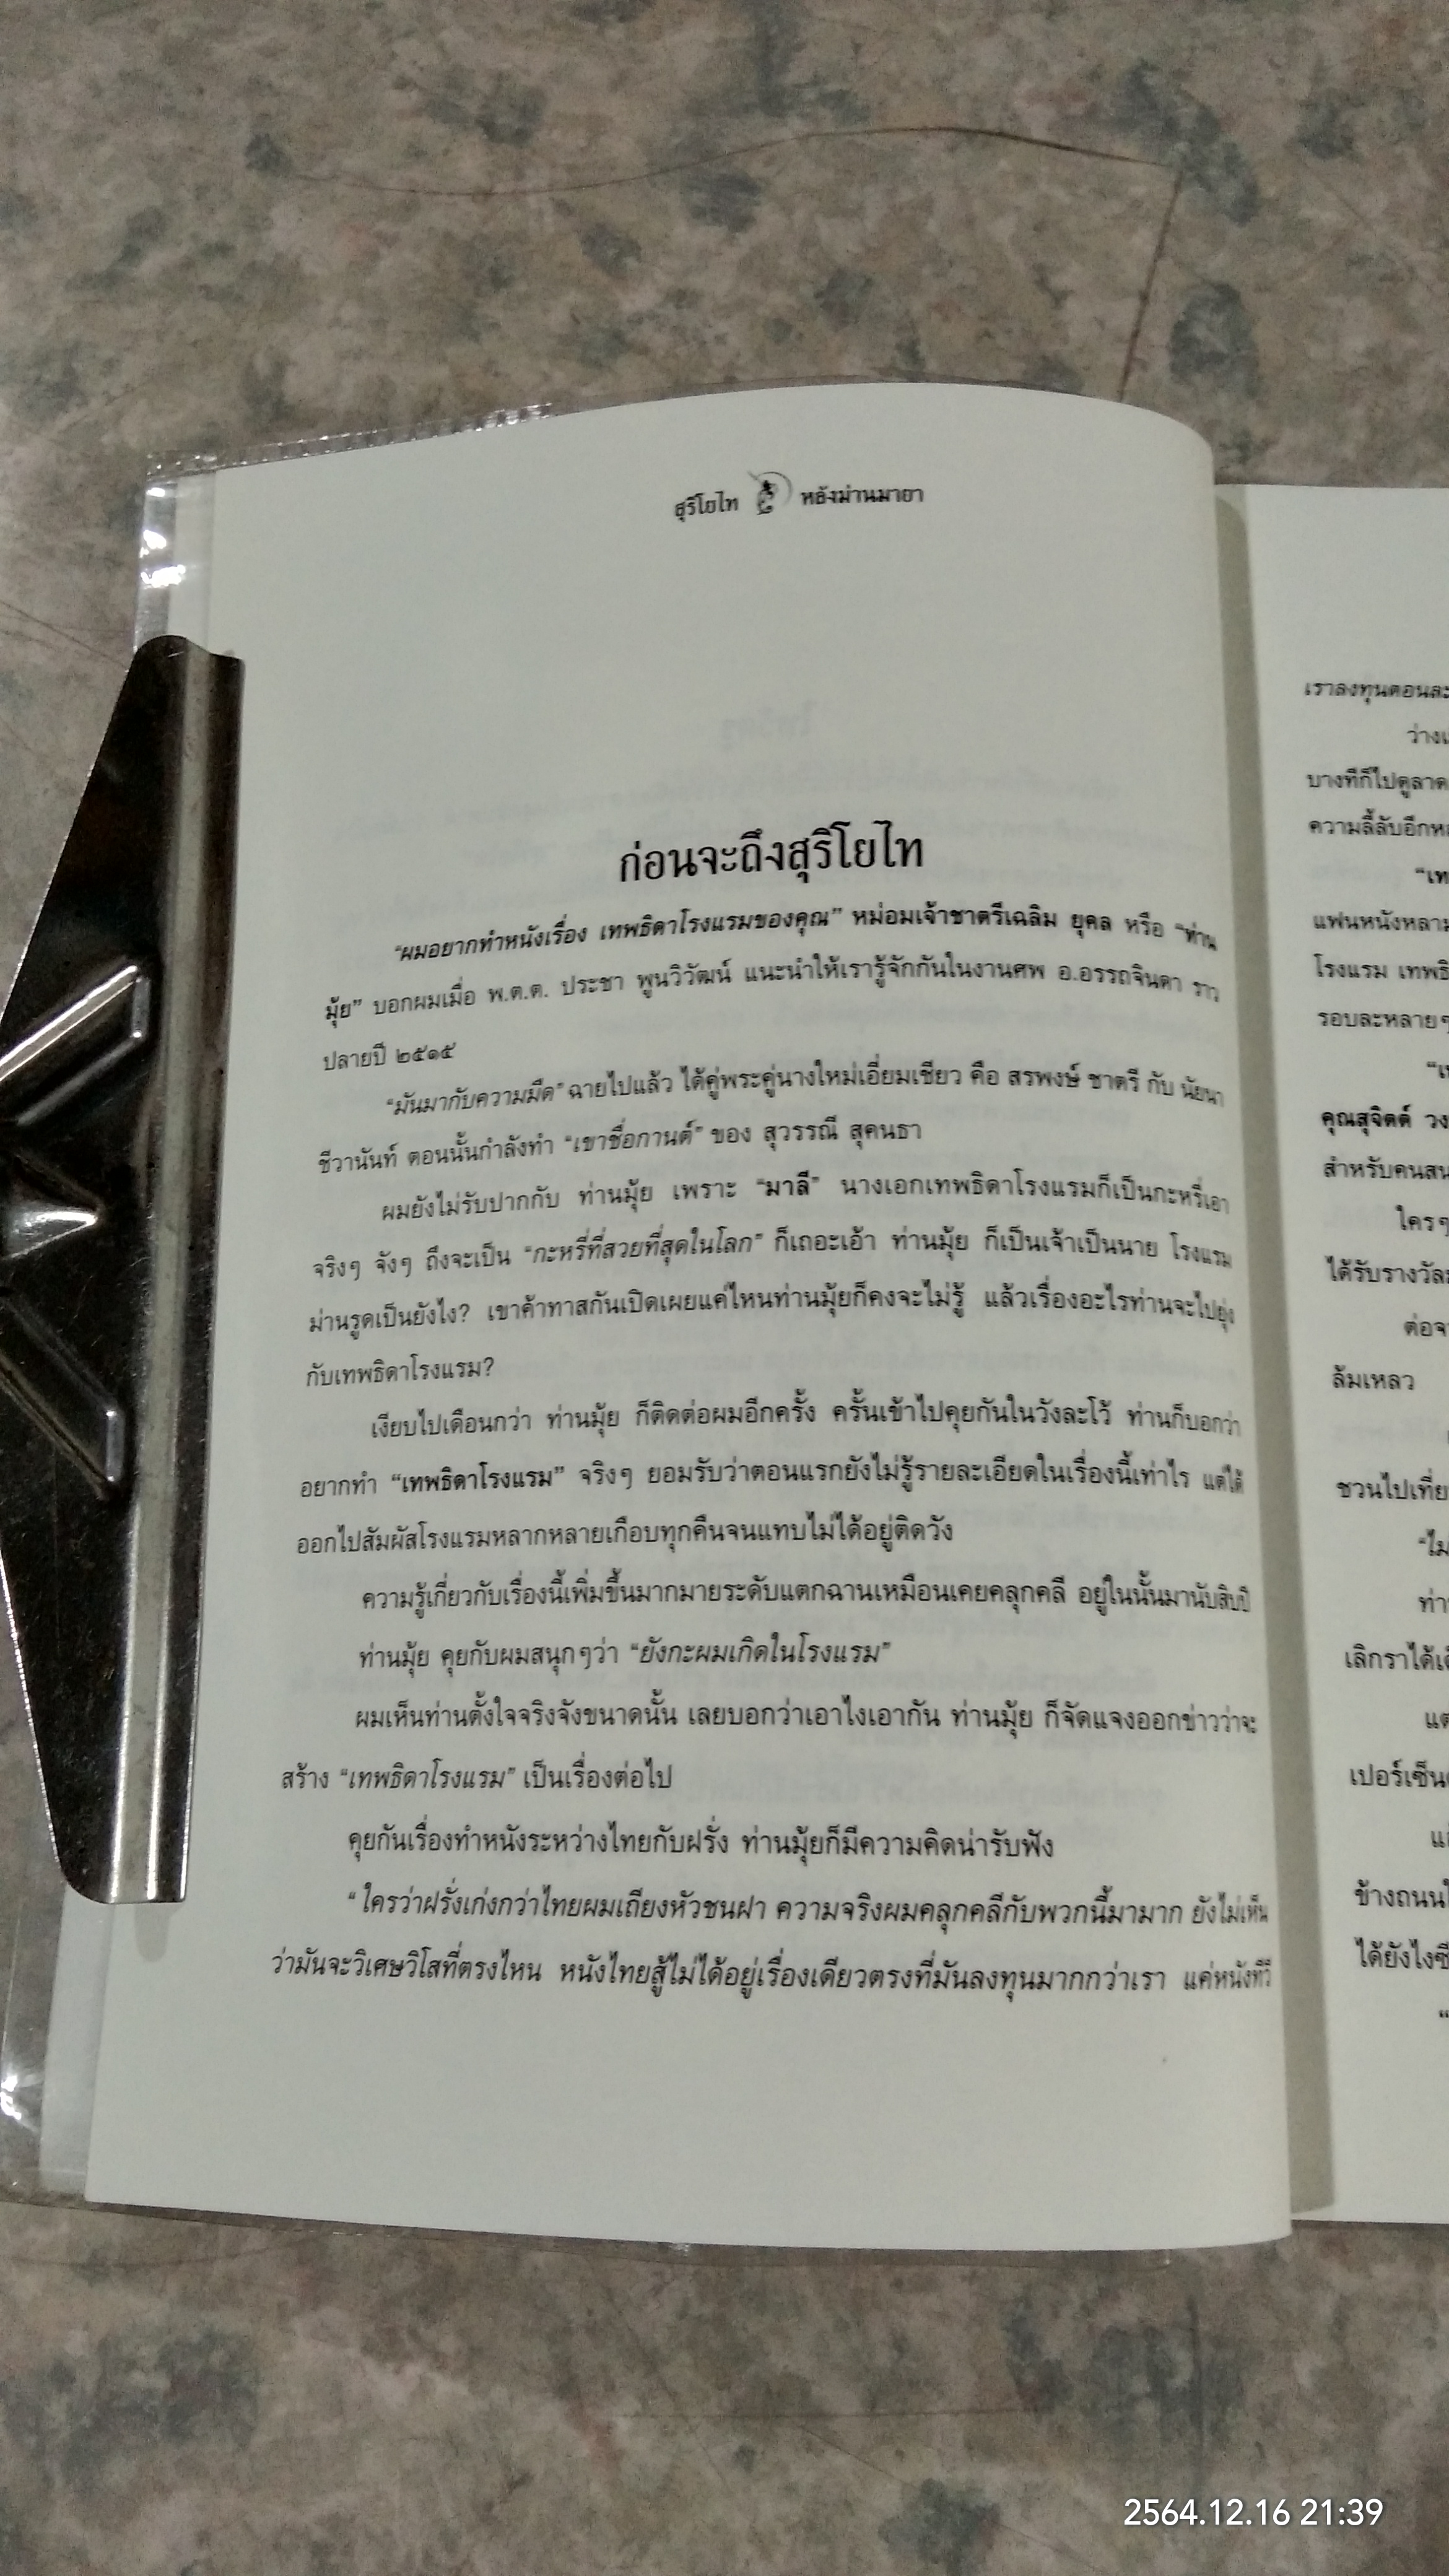 สุริโยไท หลังม่านมายา
ก่อนจะถึงสุริโยไท
“ผมอยากทำหนังเรื่อง เทพธิดาโรงแรมของคุณ” หม่อมเจ้าชาตรีเฉลิม ยุคล หรือ “ท่าน
มุ้ย” บอกผมเมื่อ พ.ต.ต. ประชา พูนวิวัฒน์ แนะนำให้เรารู้จักกันในงานศพ อ.อรรถจินดา ราว
ปลายปี ๒๕๑๕
“มันมากับความมืด” ฉายไปแล้ว ได้คู่พระคู่นางใหม่เอี่ยมเชียว คือ สรพงษ์ ชาตรี กับ นัยนา
ชีวานันท์ ตอนนั้นกำลังทำ “เขาชื่อกานต์” ของ สุวรรณี สุคนธา
ผมยังไม่รับปากกับ ท่านมุ้ย เพราะ “มาลี” นางเอกเทพธิดาโรงแรมก็เป็นกะหรี่เอา
จริงๆ จังๆ ถึงจะเป็น “กะหรี่ที่สวยที่สุดในโลก” ก็เถอะเอ้า ท่านมุ้ย ก็เป็นเจ้าเป็นนาย โรงแรม
ม่านรูดเป็นยังไง? เขาค้าทาสกันเปิดเผยแค่ไหนท่านมุ้ยก็คงจะไม่รู้ แล้วเรื่องอะไรท่านจะไปยุ่ง
กับเทพธิดาโรงแรม?
เงียบไปเดือนกว่า ท่านมุ้ย ก็ติดต่อผมอีกครั้ง ครั้นเข้าไปคุยกันในวังละโว้ ท่านก็บอกว่า
อยากทำ “เทพธิดาโรงแรม” จริงๆ ยอมรับว่าตอนแรกยังไม่รู้รายละเอียดในเรื่องนี้เท่าไร แต่ได้
ออกไปสัมผัสโรงแรมหลากหลายเกือบทุกคืนจนแทบไม่ได้อยู่ติดวัง
ความรู้เกี่ยวกับเรื่องนี้เพิ่มขึ้นมากมายระดับแตกฉานเหมือนเคยคลุกคลี อยู่ในนั้นมานับสิบปี
ท่านมุ้ย คุยกับผมสนุกๆว่า “ยังกะผมเกิดในโรงแรม”
ผมเห็นท่านตั้งใจจริงจังขนาดนั้น เลยบอกว่าเอาไงเอากัน ท่านมุ้ย ก็จัดแจงออกข่าวว่าจะ
สร้าง “เทพธิดาโรงแรม” เป็นเรื่องต่อไป
คุยกันเรื่องทำหนังระหว่างไทยกับฝรั่ง ท่านมุ้ยก็มีความคิดน่ารับฟัง
“ใครว่าฝรั่งเก่งกว่าไทยผมเถียงหัวชนฝา ความจริงผมคลุกคลีกับพวกนี้มามาก ยังไม่เห็น
ว่ามันจะวิเศษวิโสที่ตรงไหน หนังไทยสู้ไม่ได้อยู่เรื่องเดียวตรงที่มันลงทุนมากกว่าเรา แค่หนังทีวี
เราลงทุนตอนละ
บางทีก็ไปดูลาด
ความลี้ลับอีก
แฟนหนังหลาม
โรงแรม
รอบละหลายๆ
คุณสุจิตต์
สำหรับคน
ใครๆ
ได้รับรางวัล
ล้มเหลว
ชวนไปเที่ย
“ไม
ท่า
เลิกราได้
แต
เปอร์เซ็น
ข้างถนน
ได้ยังไง
2564.12.16 21:39